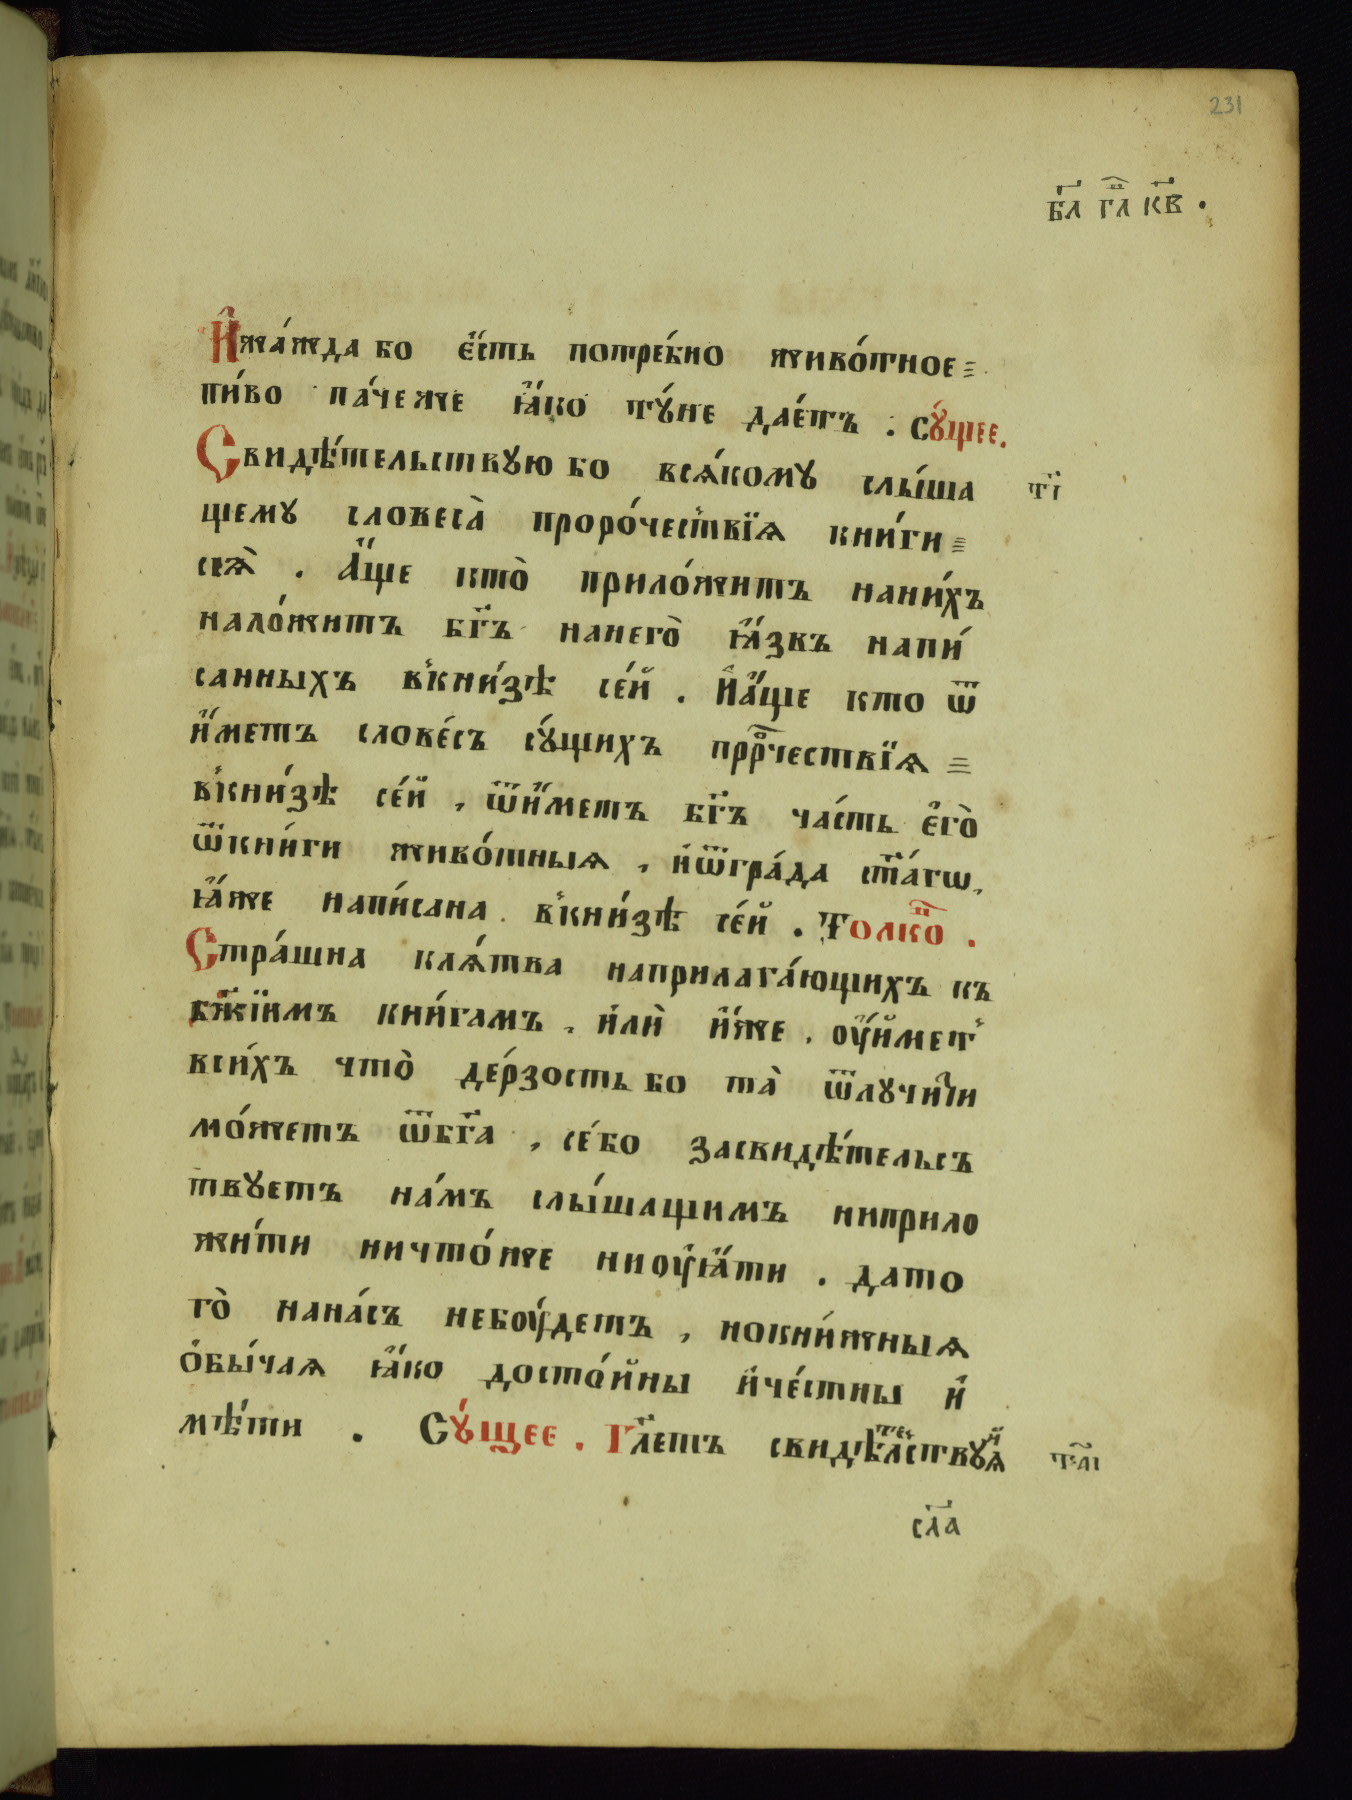 231
БЛ҃ ГЛ҃ КВ҃ .
И҆жа́жда бо є҆́сть потре́бно живо́тное
пи́во па́чеже ꙗ҆́ко тꙋ́не дае́тъ . сꙋ́щее .
Свидѣ́тельствꙋю бо всѧ́комꙋ слы́ша
т҃і
щемꙋ словеса̀ проро́чествїѧ кни́ги
сеѧ̀ . А҆́ще кто̀ прило́житъ нани́хъ
нало́житъ бг҃ъ нанего̀ ꙗ҆́звъ напи́
санныхъ в̾кни́зѣ се́й . И҆а҆́ще кто ѿ
и҆́метъ слове́съ сꙋ́щихъ прⷪ҇рчествїѧ
в̾кни́зѣ се́й , ѿи҆́метъ бг҃ъ ча́сть є҆го̀
ѿкни́ги живо́тныѧ , и҆ѿгра́да ст҃а́гѡ ,
ꙗ҆́же напи́сана в̾кни́зѣ се́й . Толкоⷡ҇ .
Стра́шна клѧ́тва наприлага́ющихъ къ
бж҃їимъ кни́гамъ , и҆лѝ и҆́же , ᲂу҆́и҆мет̾
вси́хъ что̀ де́рзость бо та̀ ѿлꙋчи́ти
мо́жетъ ѿбг҃а , се́бо засвидѣ́тельсъ
твꙋетъ на́мъ слы́шащимъниприло
жи́ти ничто́же ниᲂу҆ꙗ҆́ти . дато
го̀ нана́съ небᲂу́детъ , нокни́жныѧ
ѻ҆бы́чаѧ ꙗ҆́ко досто́йны и҆че́стны и҆
мѣ́ти . Сꙋ́щее . Гл҃етъ свидѣⷮ҇е́лствꙋѧй
та҃і
сл҃а